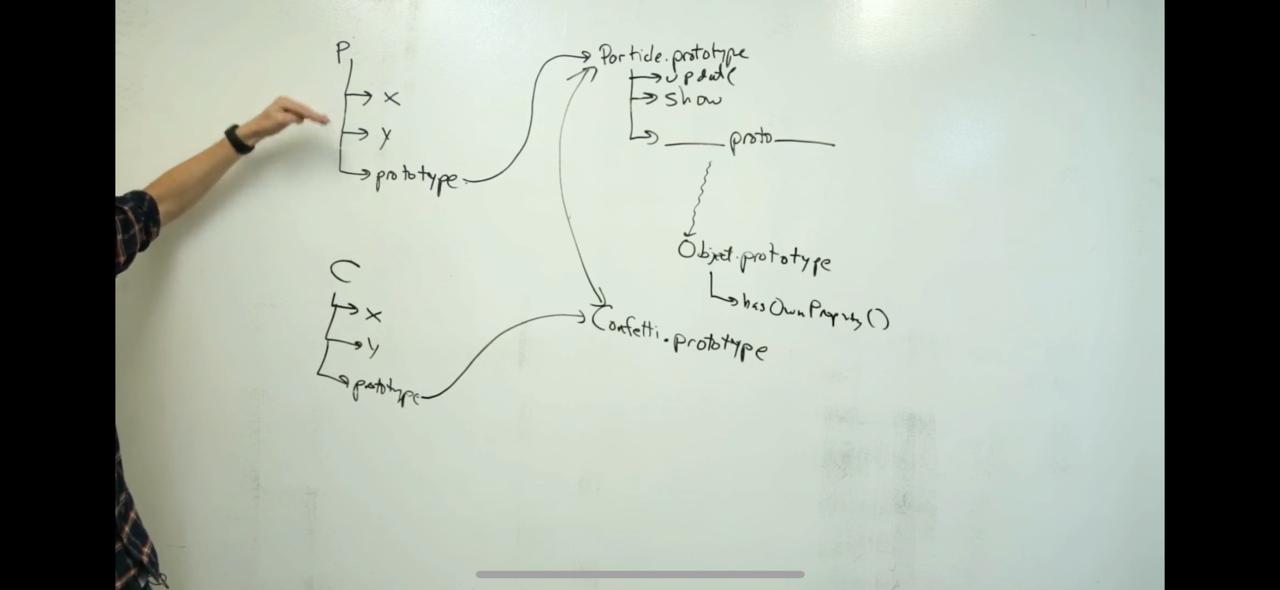 P
x
y
prototype
Particle.prototype
update
show
__proto__
Object.prototype
hasOwnProperty()
C
x
y
prototype
Confetti.prototype